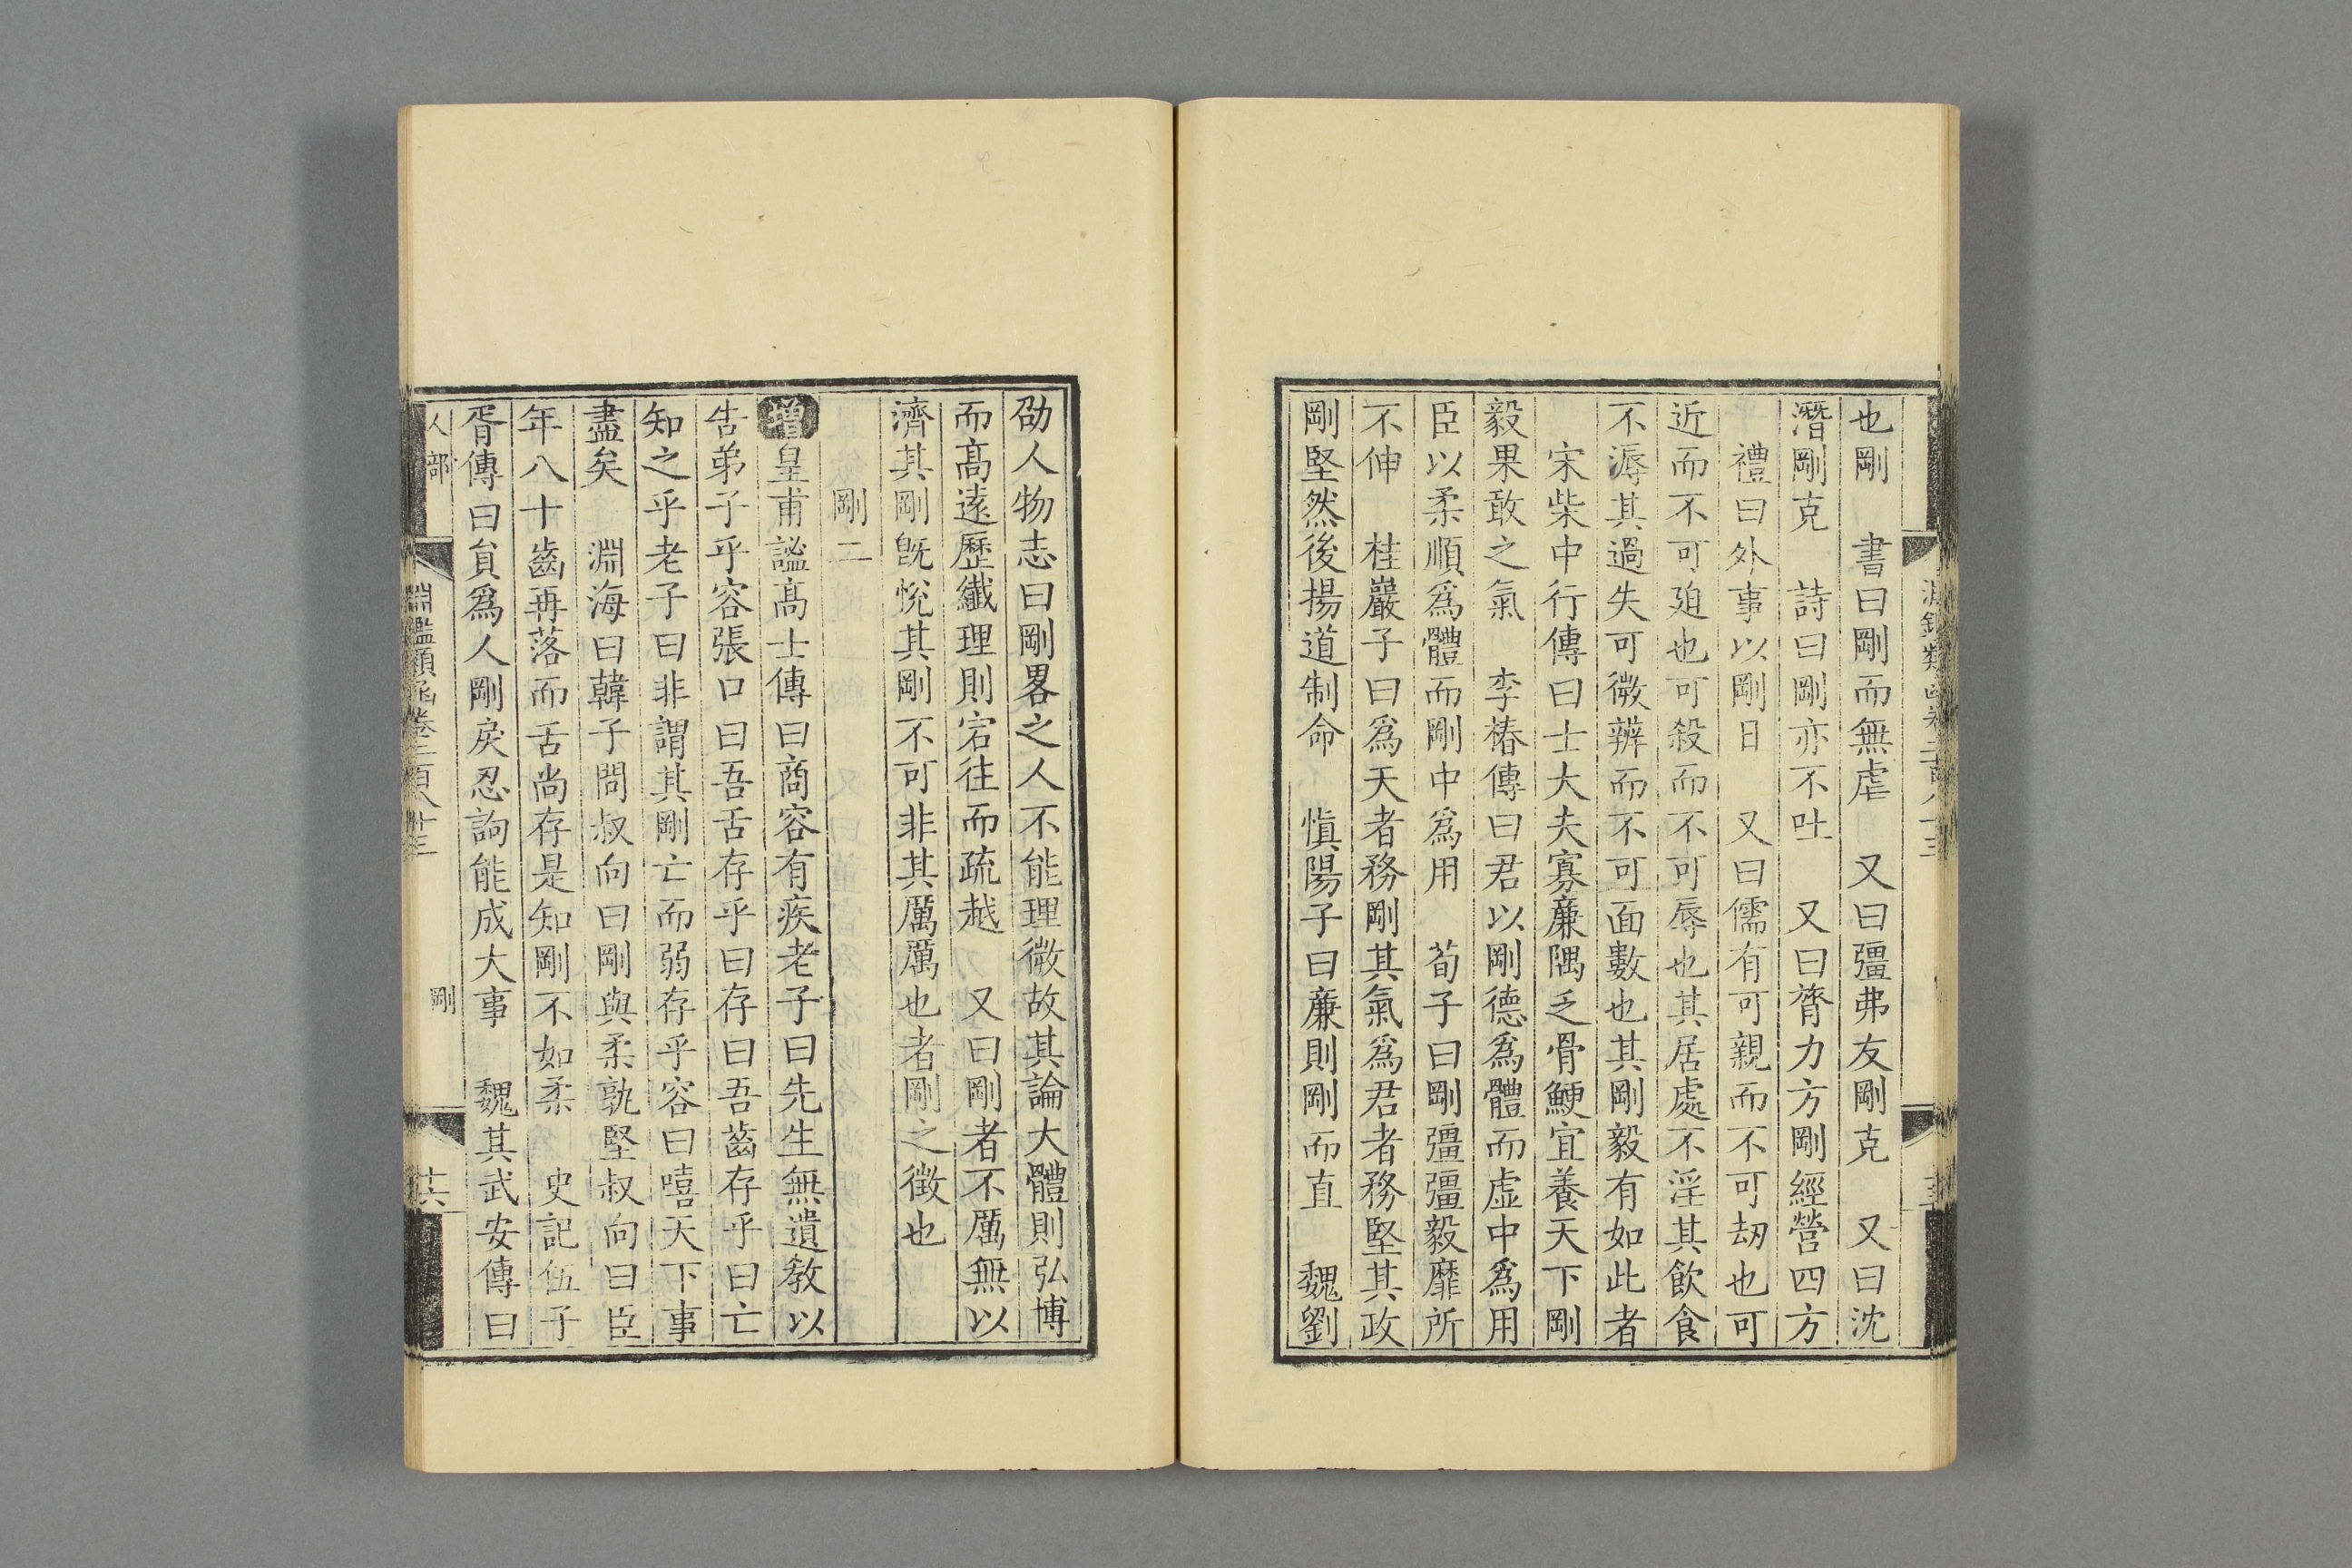 也剛　書曰剛而無虐　又曰彊弗友剛克　又曰沈
潛剛克　詩曰剛亦不吐　又曰膂力方剛經營四方
禮曰外事以剛日　又曰儒有可親而不可刼也可
近而不可廹也可殺而不可辱也其居處不淫其飲食
不溽其過失可微辨而不可面數也其剛毅有如此者
宋柴中行傳曰士大夫寡廉隅乏骨鯁宜養天下剛
毅果敢之氣　李椿傳曰君以剛德爲體而虛中爲用
臣以柔順爲體而剛中爲用　荀子曰剛彊彊毅靡所
不伸　桂巖子曰爲天者務剛其氣爲君者務堅其政
剛堅然後揚道制命　慎陽子曰廉則剛剛而直　魏劉
劭人物志曰剛畧之人不能理微故其論大體則弘博
而高遠歷纎理則宕往而疏越　又曰剛者不厲無以
濟其剛旣悅其剛不可非其厲厲也者剛之徵也
剛二
增皇甫謐高士傳曰商容有疾老子曰先生無遺教以
告弟子乎容張口曰吾舌存乎曰存曰吾齒存乎曰亡
知之乎老子曰非謂其剛亡而弱存乎容曰嘻天下事
盡矣　淵海曰韓子問叔向曰剛與柔孰堅叔向曰臣
年八十齒再落而舌尚存是知剛不如柔　史記伍子
胥傳曰貟爲人剛戾忍訽能成大事　魏其武安傳曰
人部
淵鑑類函卷三百八十三
剛
十六